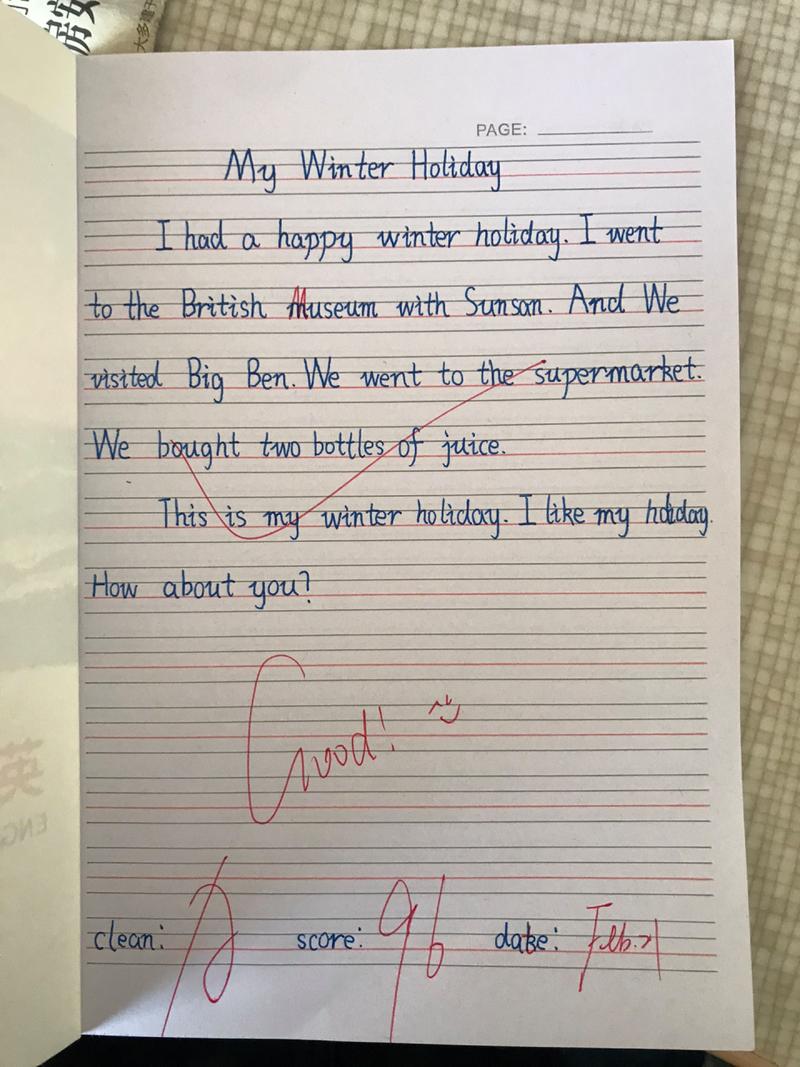 大多
PAGE:
My Winter Holiday
I had a happy winter holiday. I went
to the British Museum with Sunsan. And We
visited Big Ben. We went to the supermarket.
We bought two bottles of juice.
This is my winter holiday. I like my holiday.
How about you?
Good!
英
ENG
clean: A score: 96 date: Feb.21